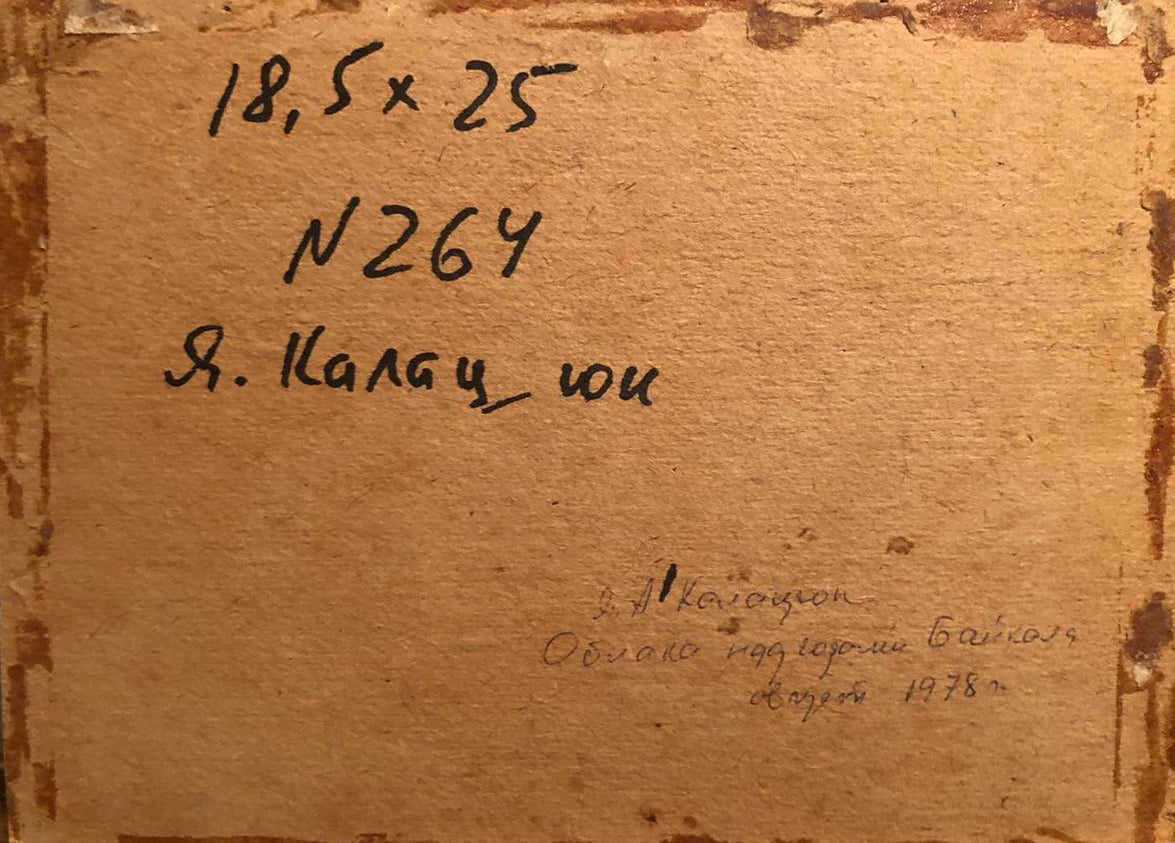 18,5 x 25
N 264
Я. Калац_юк
Я. А. Калацюк
Облака над горами Байкала
август 1978 г.